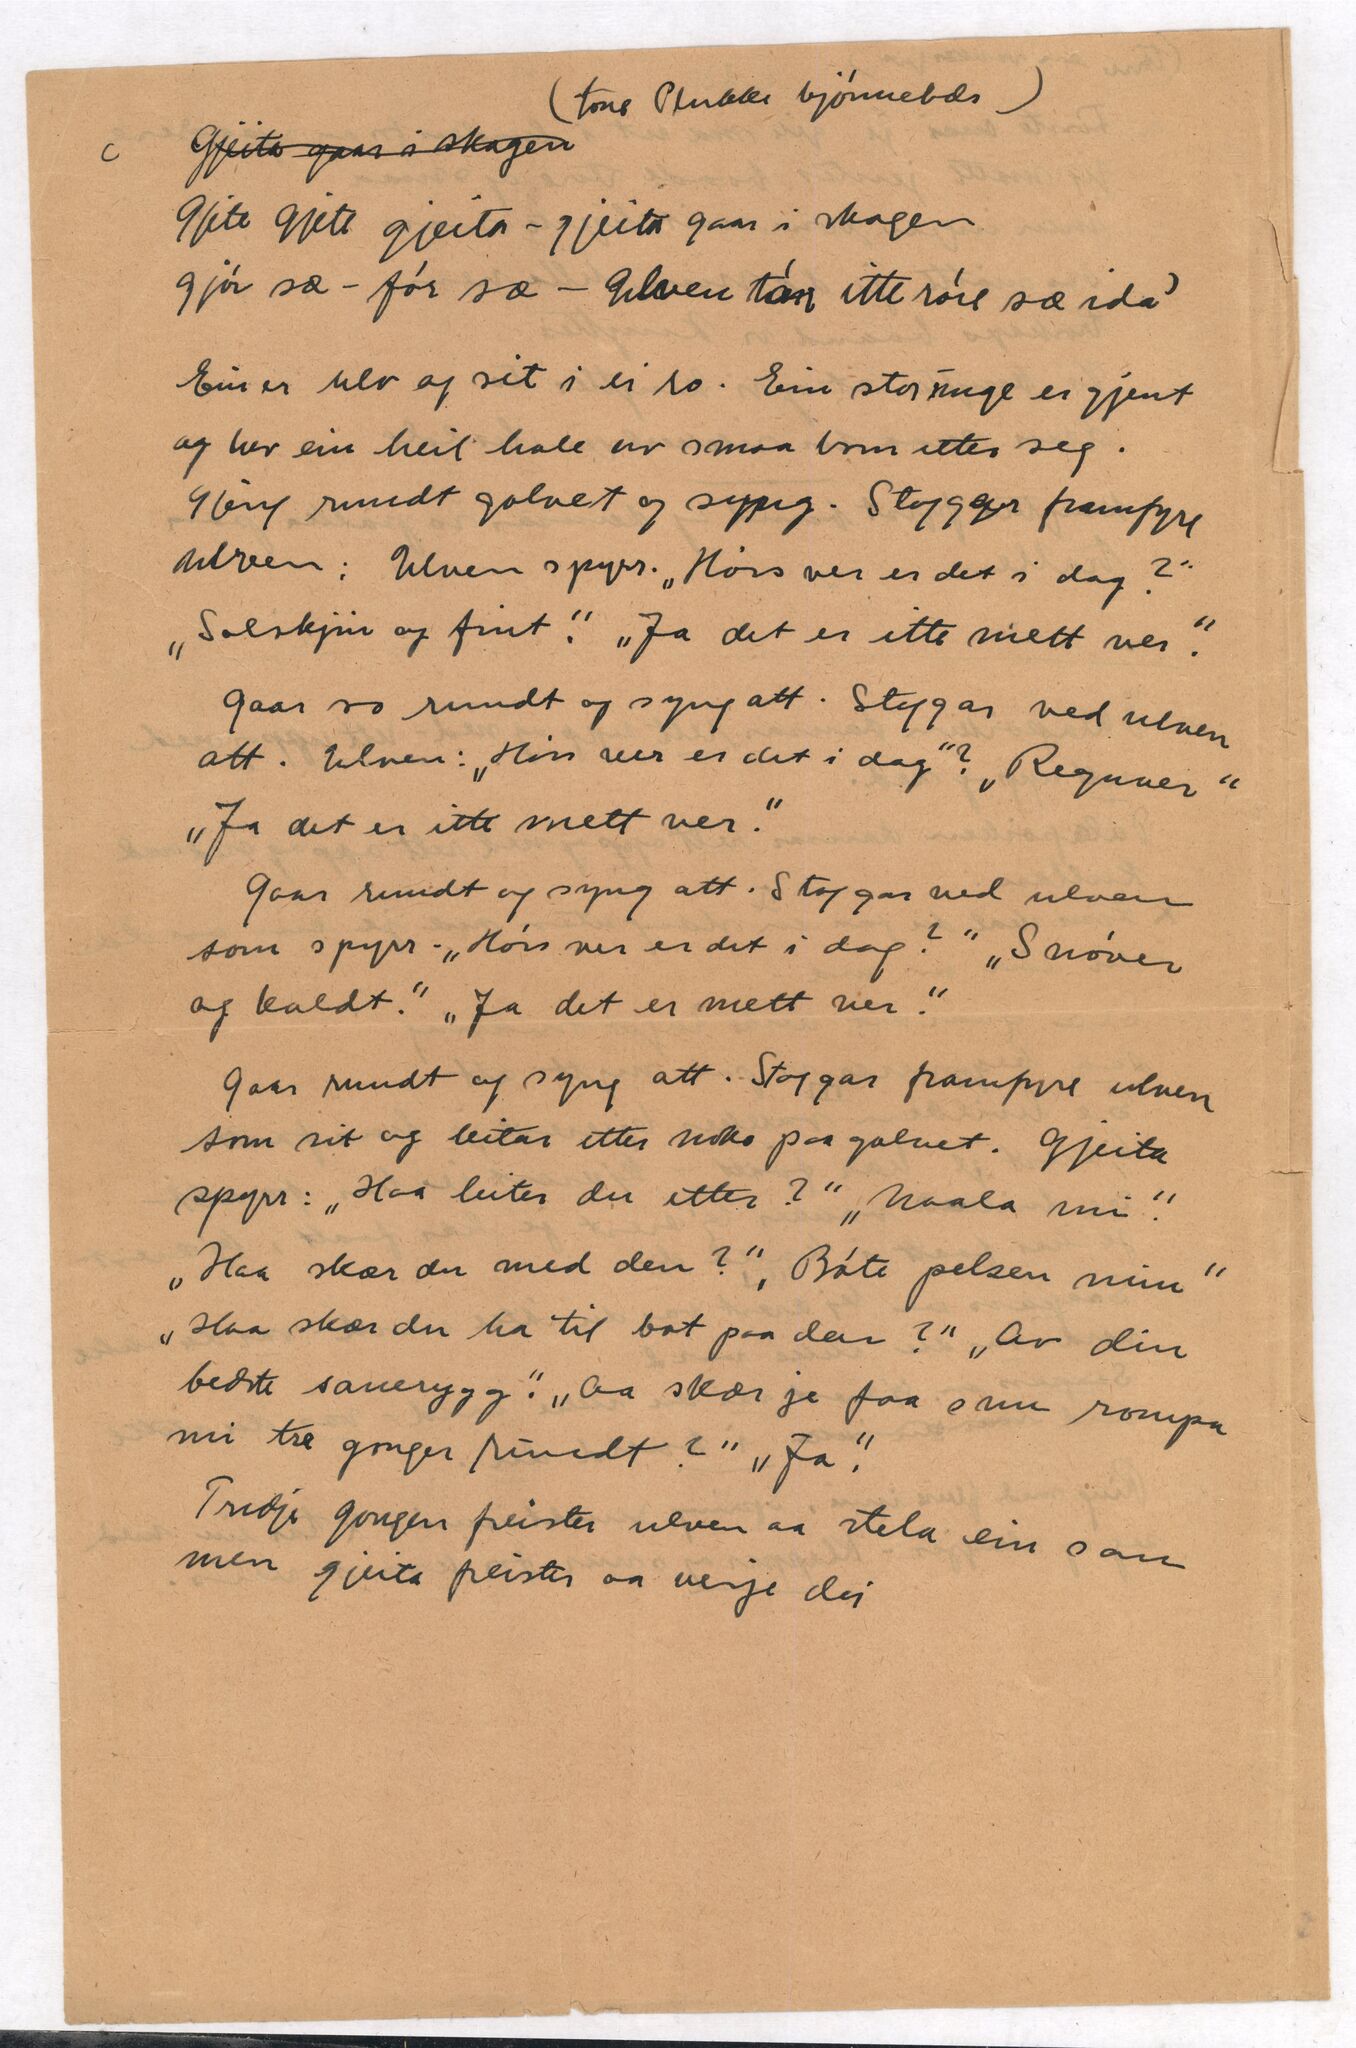 (tone Plukke bjónnebær)
c Gjeita gaar i skogen
Gjete gjete gjeita - gjeita gaar i skogen
gjór sæ - fór sæ - Ulven tár itte róre sæ ida'
Ein er ulv og sit i ei ro. Ein stor unge er gjent
og hev ein heil hale uv smaa born etter seg.
Gjeng rundt golvet og syng. Stoggar framfyre
ulven: Ulven spyrr. „Hórs ver er det i dag?“
„Solskjin og fint“. „Ja det er itte mett ver“.
Gaar so rundt og syng att. Stoggar ved ulven
att. Ulven: „Hórs ver er det i dag“? „Regnver“
„Ja det er itte mett ver.“
Gaar rundt og syng att. Stoggar ved ulven
som spyrr - „Hórs ver er det i dag?“ „Snóver
og kaldt.“ „Ja det er mett ver.“
Gaar rundt og syng att. Stoggar framfyre ulven
som sit og leitar etter noko paa golvet. Gjeita
spyrr: „Haa leiter du etter?“ „Naala mi“.
„Haa skær du med den?“ „Bóte pelsen min“
„Haa skær du ha til bot paa den?“ „Av din
bedste sauerygg“. „Aa skær je faa snu rompa
mi tre gonger rundt?“ „Ja“.
Tridje gongen freister ulven aa stela ein sau
men gjeita freister aa verje dei